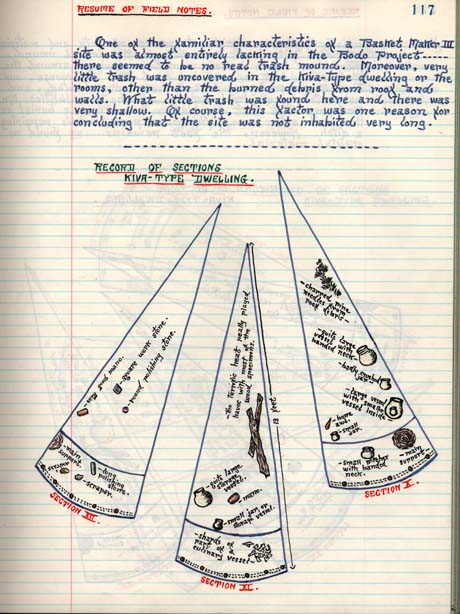 RESUME OF FIELD NOTES.
117
One of the familiar characteristics of a Basket Maker III
site was almost entirely lacking in the Dodo Project-----
there seemed to be no real trash mound. Moreover, very
little trash was uncovered in the Kiva-type dwelling or the
rooms, other than the burned debris from roof and
walls. What little trash was found here and there was
very shallow. Of course, this factor was one reason for
concluding that the site was not inhabited very long.
RECORD OF SECTIONS
KIVA-TYPE DWELLING.
-very good mano.
-square work stone.
-round polishing stone.
-main
support.
-scraper
-long
polishing
stone.
-scraper.
SECTION XII.
-the terrific heat really played
havoc with most of the
wood specimens.
13 feet
-quite large
storage
vessel.
-mano.
-small jar or
storage vessel.
-shards of
part of a
culinary vessel-
SECTION XI.
-charred pine
needles above
roof debris-
-quite large
vessel with
banded neck-
-badly crushed
jar-
-large vessel
with smaller
vessel inside
-bone
awl.
-small
jar.
-small pitcher
with banded
neck.
-main
support.
SECTION X.